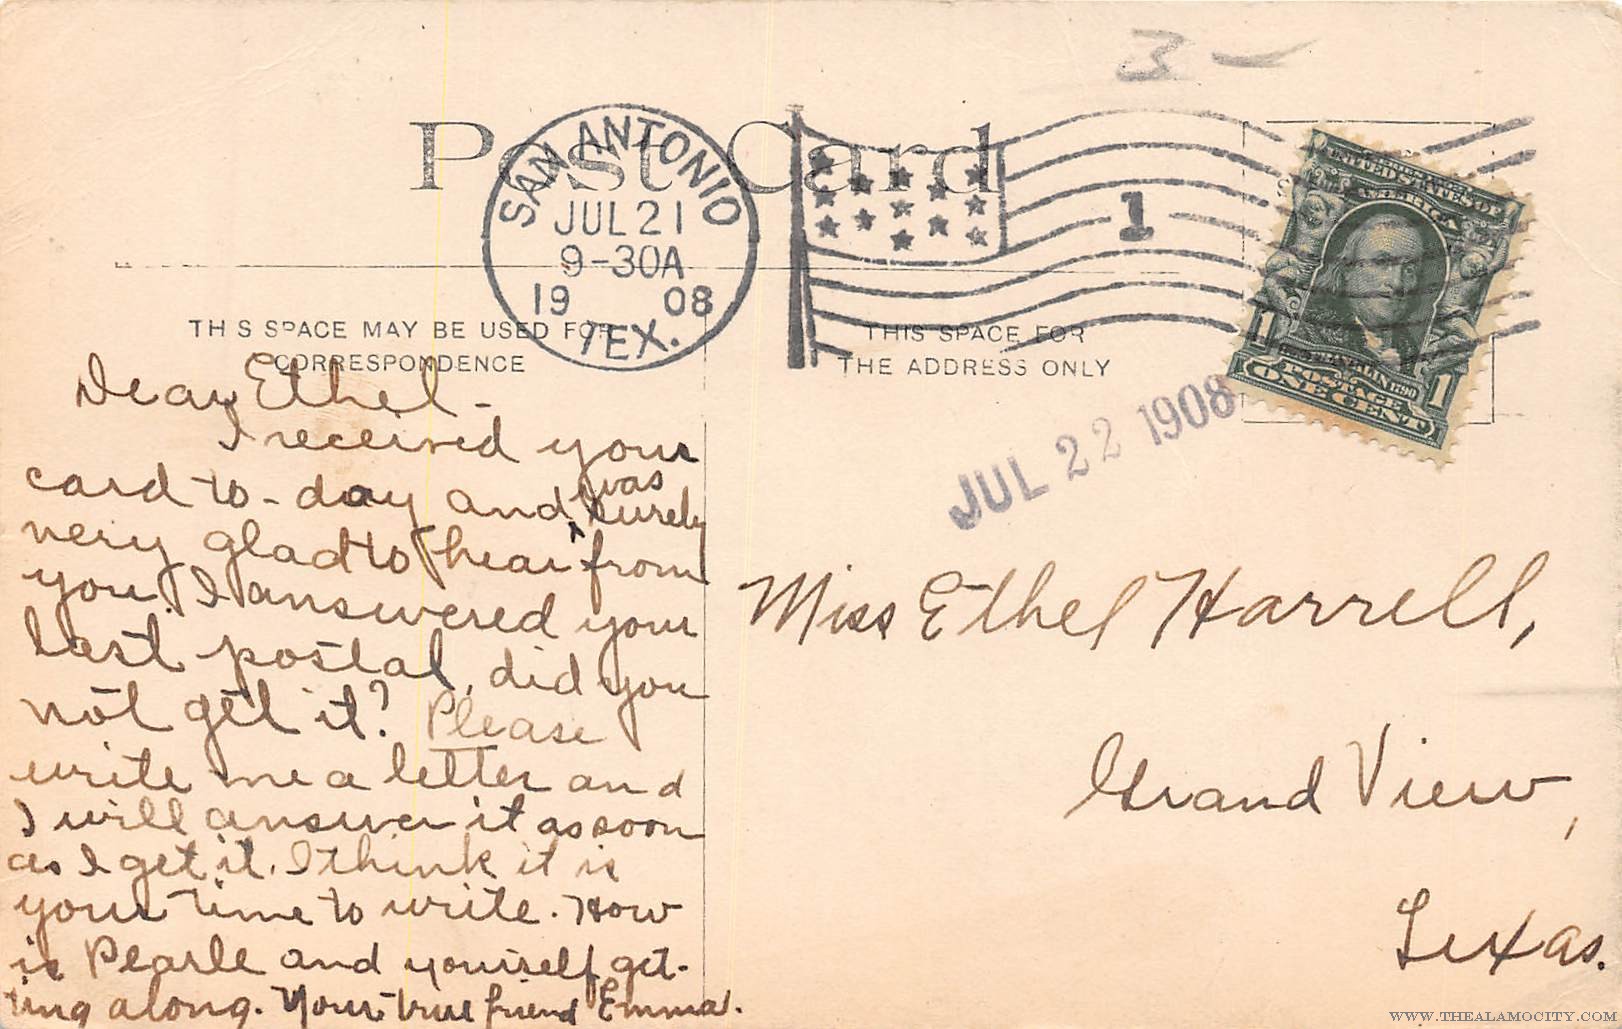 3 -
Post Card
SAN ANTONIO
JUL 21
9-30A
19 08
TEX.
1
UNITED STATES OF
AMERICA
1 1
POSTAGE
ONE CENT
TH S SPACE MAY BE USED FOR
CORRESPONDENCE
THIS SPACE FOR
THE ADDRESS ONLY
JUL 22 1908
Dear Ethel -
I received your
card to-day and was surely
very glad to hear from
you. I answered your
last postal, did you
not get it? Please
write me a letter and
I will answer it as soon
as I get it. I think it is
your time to write. How
is Pearle and yourself get-
ting along. Your true friend Emma.
Miss Ethel Harrell,
Grand View,
Texas.
WWW.THEALAMOCITY.COM